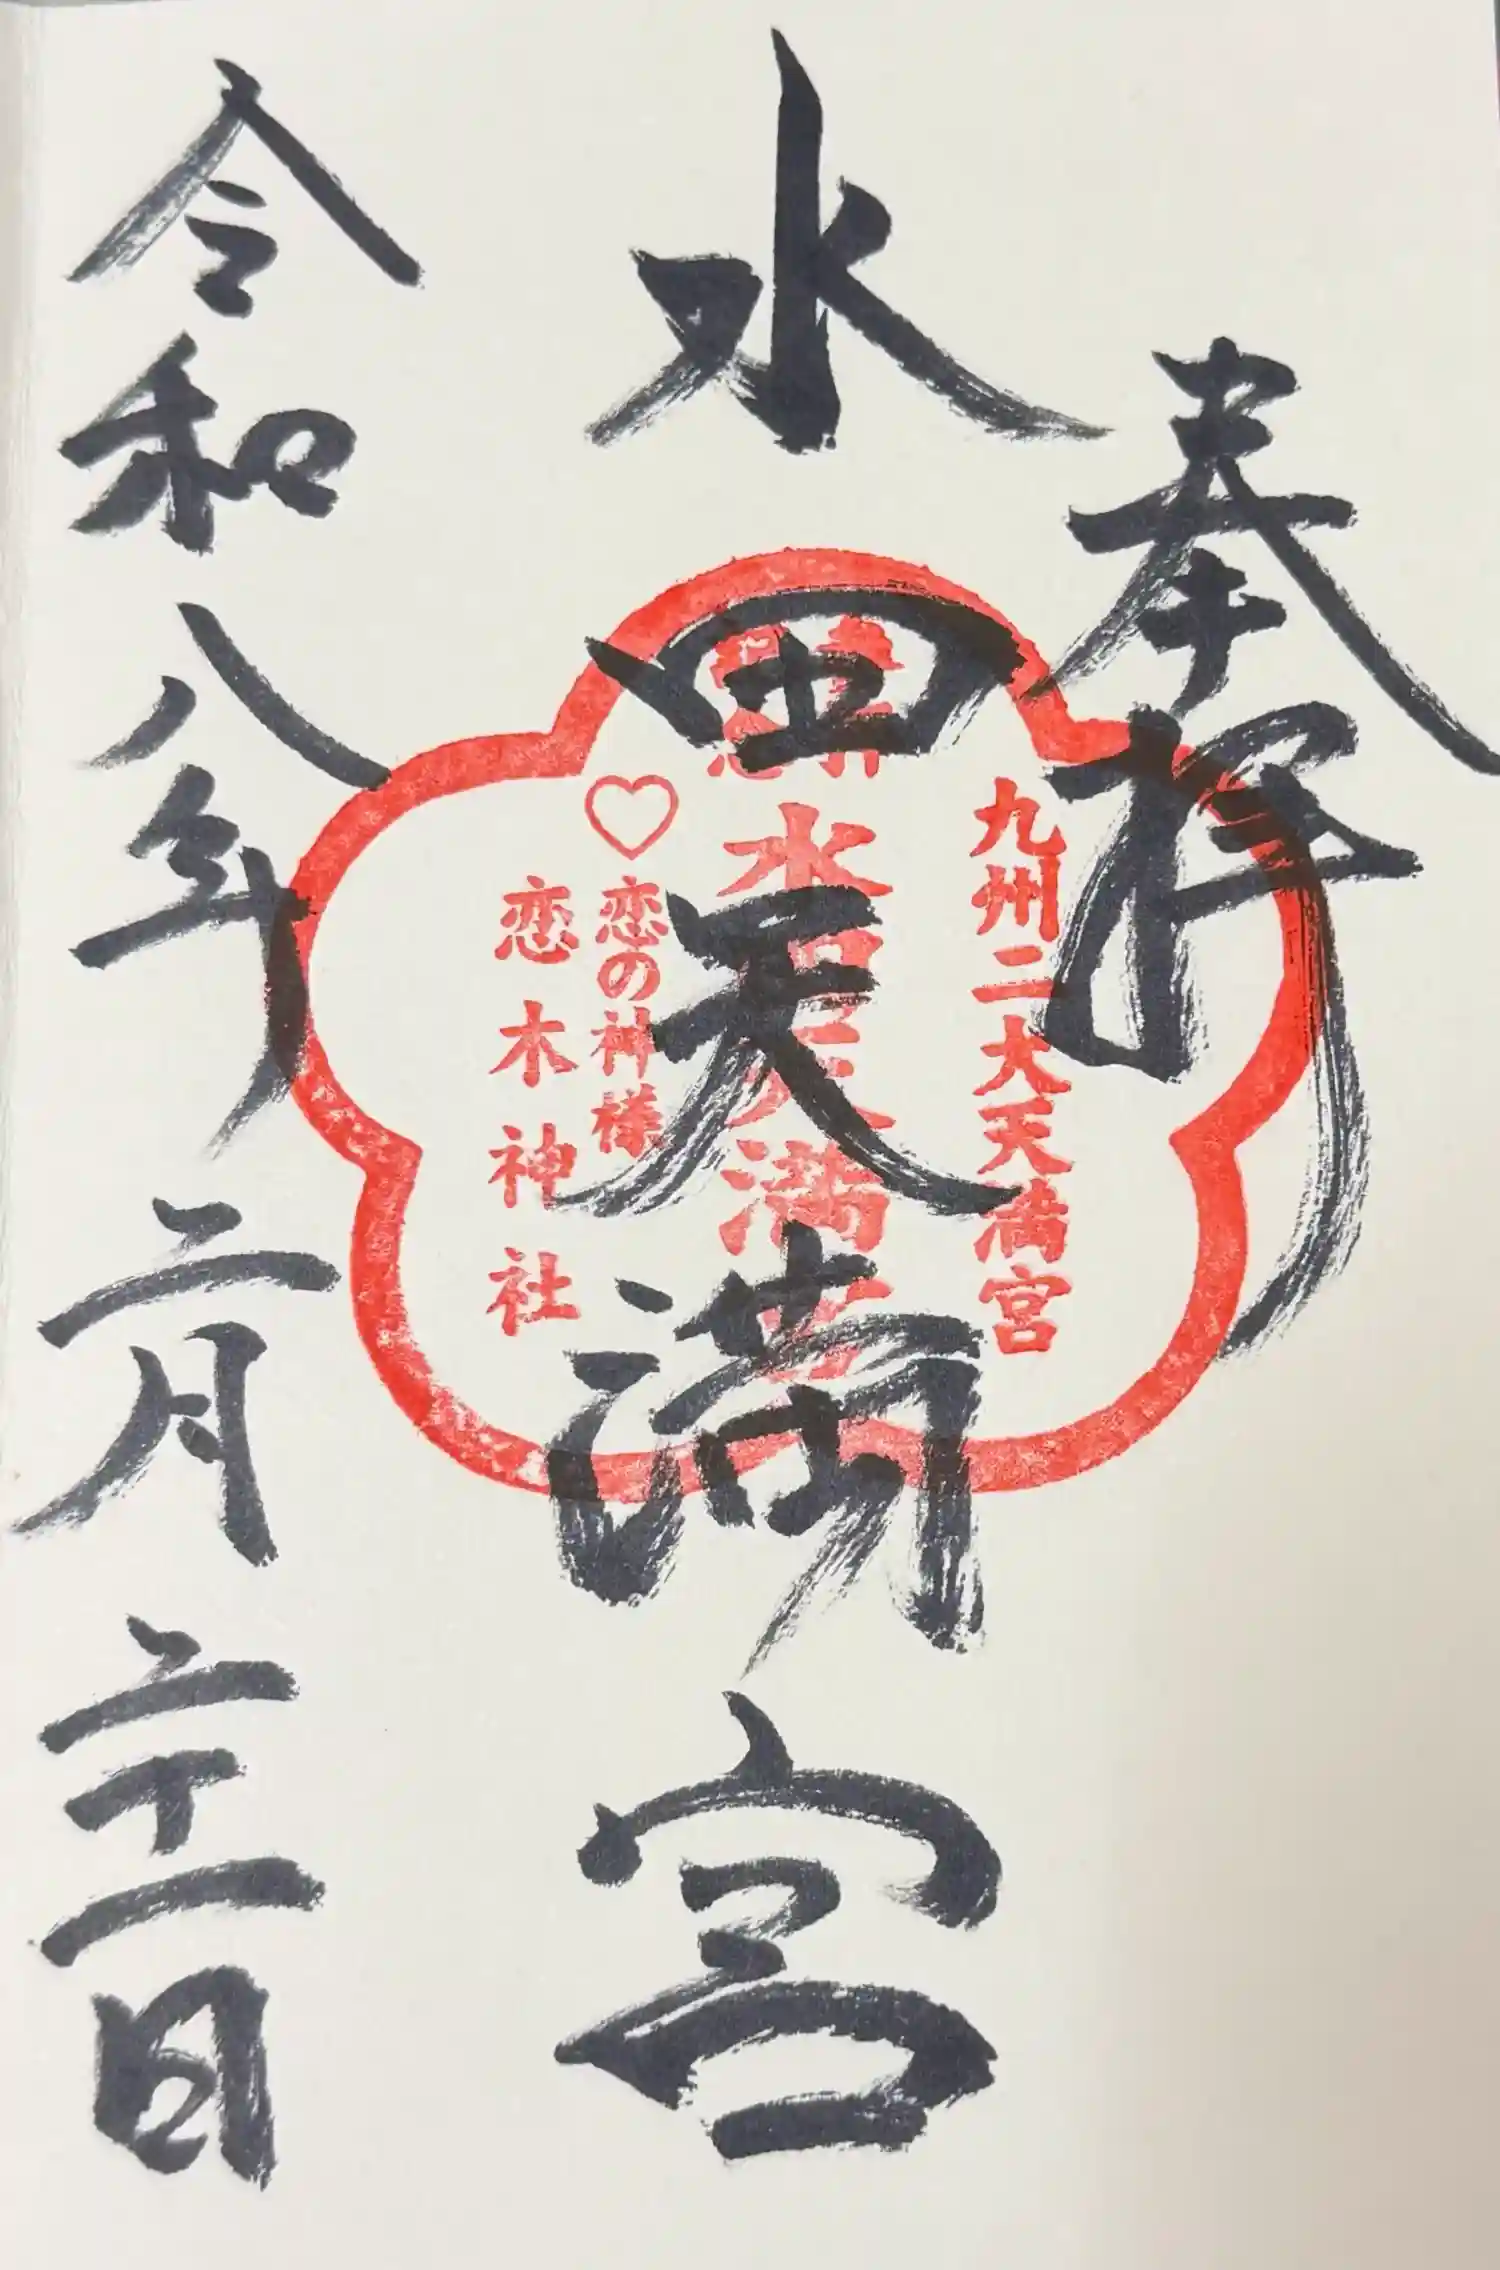 奉拝
九州二大天満宮
水田天満宮
水田天満宮
♡恋の神様
恋木神社
令和八年二月二十一日